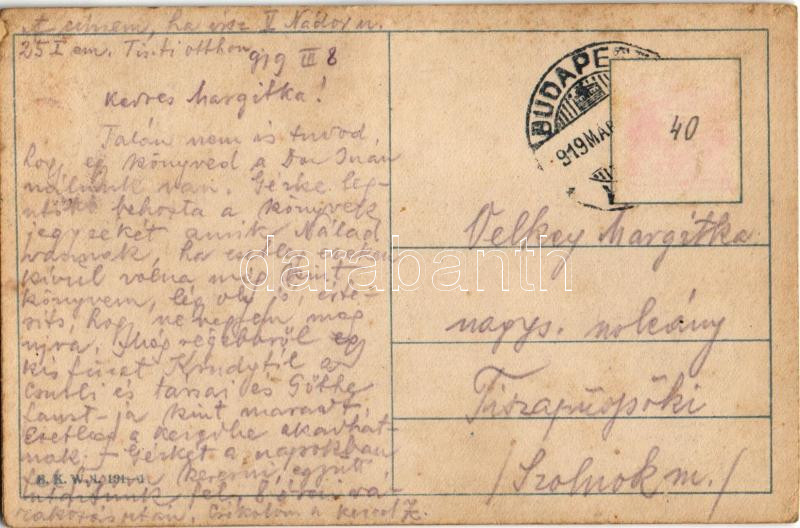 A címem, ha írsz V Nádor u.
25 I em. Tiszti otthon
919 III 8
Kedves Margitka!
Talán nem is tudod,
hogy egy könyved a Don Juan
nálunk van. Gérke leg-
utóbb behozta a könyvek
jegyzékét amik Nálad
vannak, ha esetleg ezeken
kívül volna még kint
könyvem, légy oly jó, érte-
síts, hogy ne vegyem meg
újra. Még régebbről egy
kis füzet Krudytól a
Csutli és társai és Göthe
Faust-ja kint maradt,
Esetleg a kezedbe akadhat-
nak. – Gérkét a napokban
kereszni, együtt
utaztunk fel, 6 évi vá-
rakozás után. Csókolom a kezed Z.
B. K. W. I. 191
BUDAPE
919 MÁR
40
Velkey Margitka
nagys. urleány
Tiszapüspöki
/Szolnok m./
darabanth